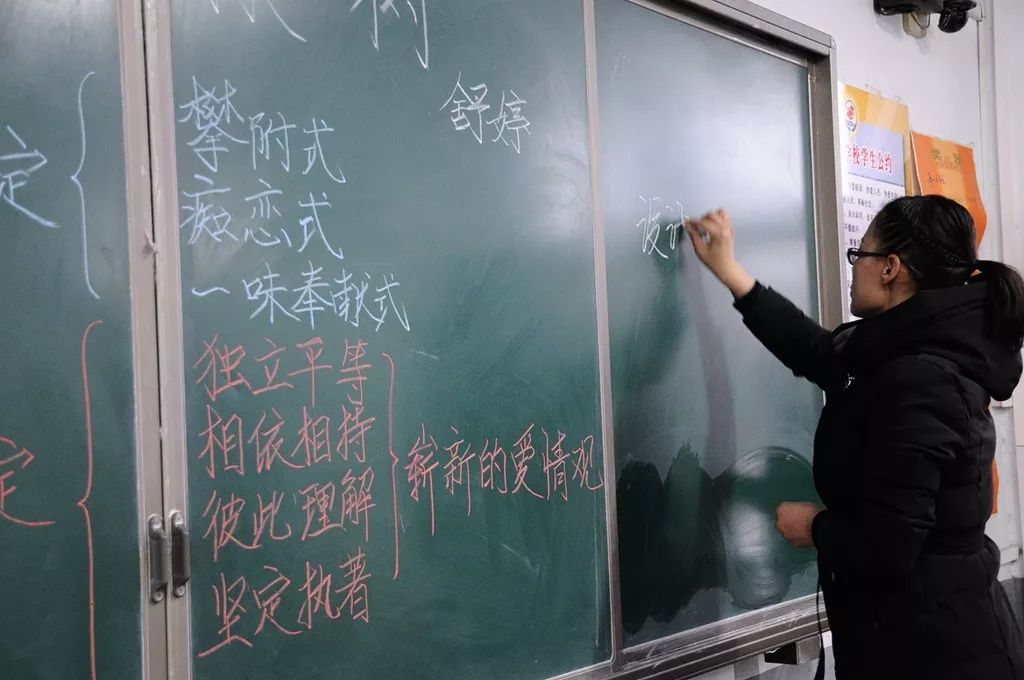 树
舒婷
定
攀附式
痴恋式
一味奉献式
定
独立平等
相依相持
彼此理解
坚定执著
崭新的爱情观
设计
学生公约